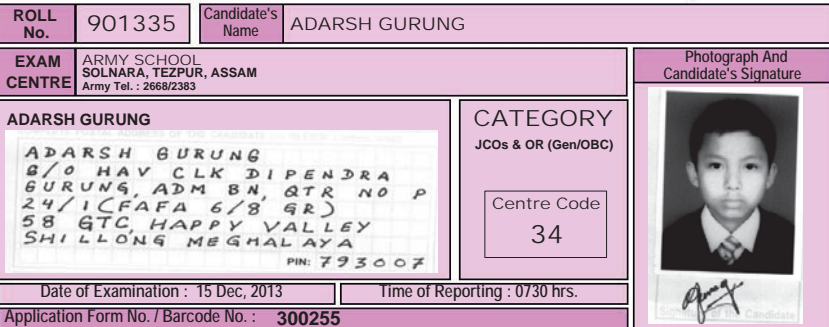 ROLL No. 901335 Candidate's Name ADARSH GURUNG
EXAM CENTRE
ARMY SCHOOL
SOLNARA, TEZPUR, ASSAM
Army Tel. : 2668/2383
Photograph And
Candidate's Signature
ADARSH GURUNG
ADARSH GURUNG
S/O HAV CLK DIPENDRA
GURUNG, ADM BN, QTR NO P
24/1 (FAFA 6/8 GR)
58 GTC, HAPPY VALLEY
SHILLONG MEGHALAYA
PIN: 793007
CATEGORY
JCOs & OR (Gen/OBC)
Centre Code
34
Signature of the Candidate
Date of Examination : 15 Dec, 2013 Time of Reporting : 0730 hrs.
Application Form No. / Barcode No. : 300255